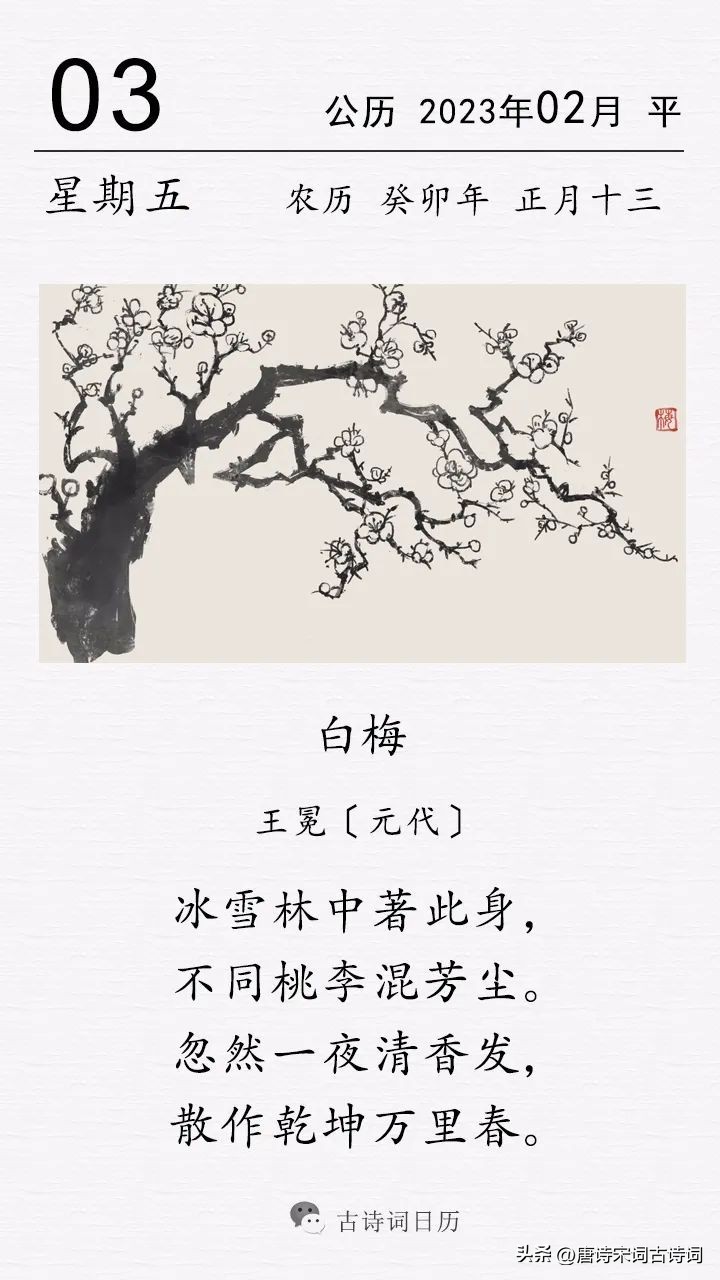 03
公历 2023年02月 平
星期五 农历 癸卯年 正月十三
梅
白梅
王冕〔元代〕
冰雪林中著此身，
不同桃李混芳尘。
忽然一夜清香发，
散作乾坤万里春。
古诗词日历
头条 @唐诗宋词古诗词